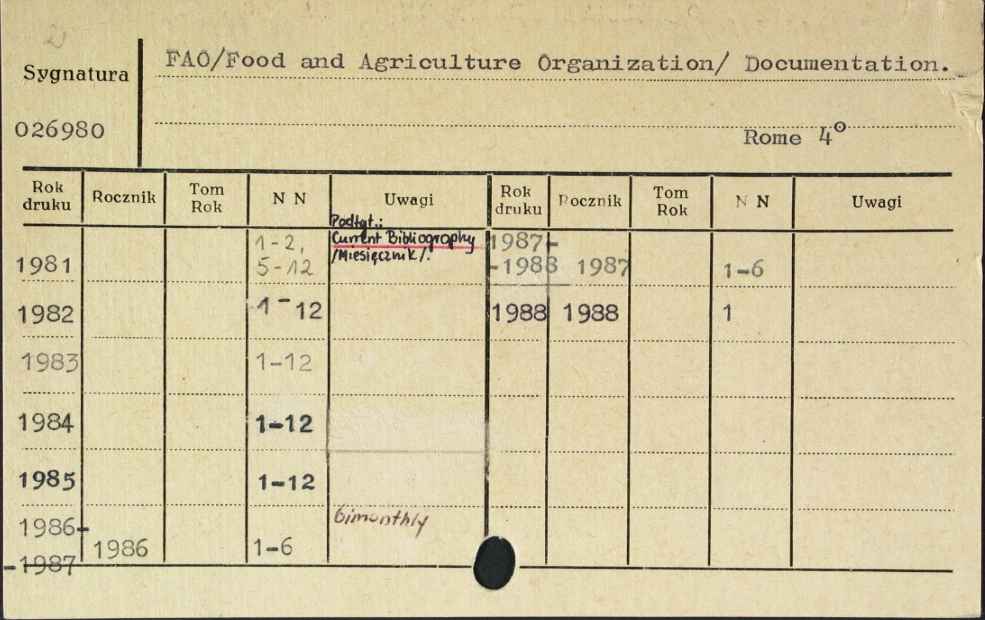 Sygnatura
FAO/Food and Agriculture Organization/ Documentation.
026980
Rome 4º
Rok druku Rocznik Tom Rok N N Uwagi Rok druku Rocznik Tom Rok N N Uwagi
Podtyt.:
Current Bibliography
/Miesięcznik/.
1981 1-2,
5-12
1987-
-1988 1987 1-6
1982 1-12
1988 1988 1
1983 1-12
1984 1-12
1985 1-12
1986-
-1987 1986 1-6 bimonthly